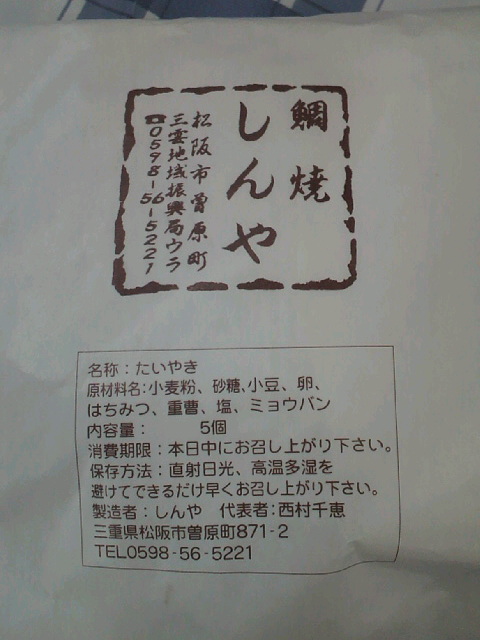 鯛焼
しんや
松阪市曽原町
三雲地域振興局ウラ
☎0598-56-5221
名称：たいやき
原材料名:小麦粉、砂糖,小豆、卵、
はちみつ、重曹、塩、ミョウバン
内容量： 5個
消費期限：本日中にお召し上がり下さい。
保存方法：直射日光、高温多湿を
避けてできるだけ早くお召し上がり下さい。
製造者：しんや 代表者:西村千恵
三重県松阪市曽原町871-2
TEL0598-56-5221